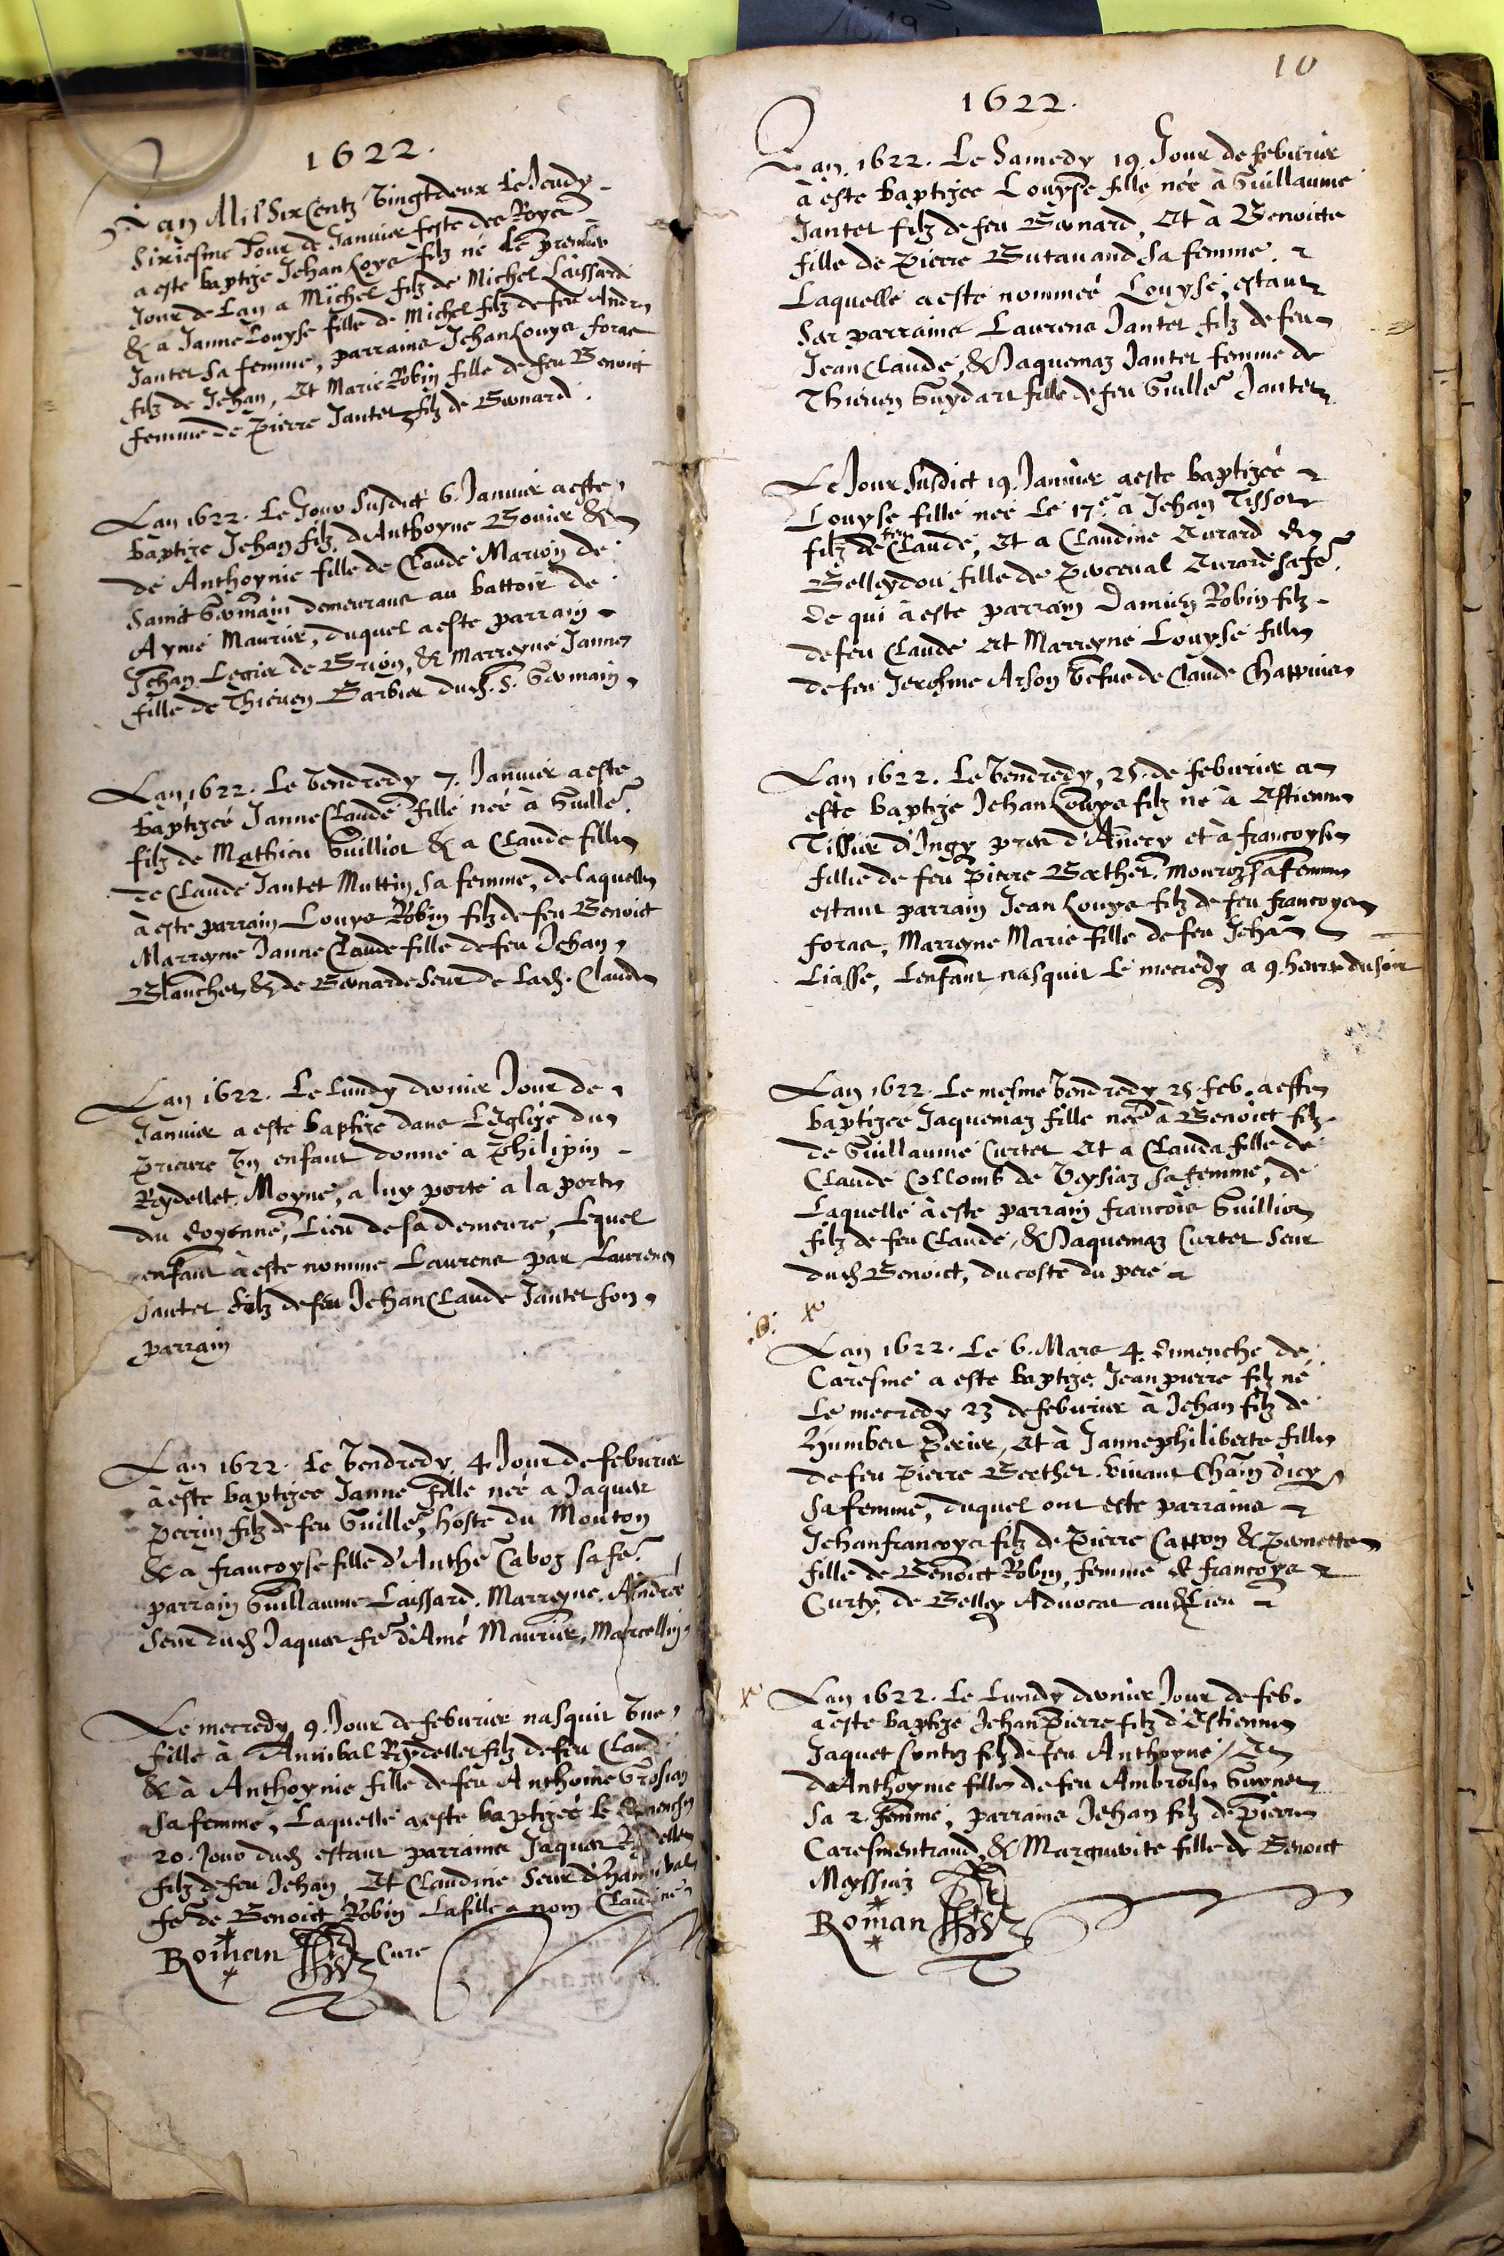 1622.
Lan Mil Six Centz vingt deux le Jeudy
sixiesme Jour de Janvier feste des Roys
a este baptize Jehan Loys filz né le premier
Jour de Lan a Michel filz de Michel Laissard
& a Janne Louyse fille de Michel filz de feu Andre
Jantet sa femme, parrains Jehan Louys foras
filz de Jehan, Et Marie Robin fille de feu Benoict
femme de Pierre Jantet filz de Bernard.
Lan 1622. Le Jour susdict 6. Janvier a este
baptize Jehan filz d'Anthoyne Bovier &
de Anthoynie fille de Claude de
Sainct Germain demeurant au battoir de
Aymé Maurier, duquel a este parrain
Jehan Legier de Brion, & Marreyne Janne
fille de Thieven Barbier dud. S. Germain
Lan 1622. Le Vendredy 7. Janvier a este
baptizée Janne Claude fille née à Guille
filz de Mathieu Guilliot & a Claude fille
de Claude Jantet Muttin sa femme, de laquelle
à este parrain Louys Robin filz de feu Benoict
Marreyne Janne Claude fille de feu Jehan
Blanchet & de Bernarde seur de lad. Claude
Lan 1622. Le Lundy dernier Jour de
Janvier a este baptize dans L'Eglize du
prieure vn enfant donné a Philipin
Reydellet Moyne, a luy porté a la porte
du doyenné, Lieu de sa demeure, Lequel
enfant à este nommé Laurens par Laurens
Jantet filz de feu Jehan Claude Jantet son
parrain
Lan 1622. Le Vendredy 4. Jour de febvrier
à este baptizée Janne fille née a Jaques
Perrin filz de feu Guille, hoste du Mouton
& a francoyse fille d'Anthe Caboz sa fe.
parrain Guillaume Laissard. Marreyne. Andrée
seur dud Jaques fe d'Amé Maurier, Marcellin
Le mecredy 9. Jour de febvrier nasquit vne
fille à Annibal Reydellet filz de feu Claude
& à Anthoynie fille de feu Anthoine Grosian
sa femme, Laquelle a este baptizée le dimenche
20. Jour dud estant parrains Jaques Reydellet
filz de feu Jehan, Et Claudine seur d'Hannibal
fe de Benoict Robin La fille a nom Claudine
Roman Curé
10
1622.
Lan. 1622. Le Samedy 19. Jour de febvrier
à este baptizee Louyse fille née à Guillaume
Jantet filz de feu Bernard, Et à Benoicte
fille de Pierre Butavand sa femme.
Laquelle a este nommée Louyse, estant
ses parrains Laurens Jantet filz de feu
Jean Claude, & Jaquemaz Jantet femme de
Thieven Guydart fille de feu Guille Jantet
Le Jour susdict 19. Janvier a este baptizée
Louyse fille née le 17e. à Jehan Tissot
filz de feu Claude, Et a Claudine Curard de
Belleydou fille de Perceval Curard sa fe.
de qui à este parrain Damien Robin filz
de feu Claude Et Marreyne Louyse fille
de feu Jerosme Arson vefue de Claude Chappuis
Lan 1622. Le Vendredy, 25. de febvrier a
este baptize Jehan Louys filz né à Estienne
Tissier d'Ingy pres d'Annecy et à francoyse
fille de feu Pierre Berthet Monroz sa femme
estant parrain Jean Louys filz de feu francoys
foras, Marreyne Marie fille de feu Jehan
Liasse, L'enfant nasquit le mecredy a 9. heures du soir
Lan 1622. Le mesme Vendredy 25. feb. a este
baptizée Jaquemaz fille née à Benoict filz
de Guillaume Curtet Et a Clauda fille de
Claude Collomb de Veysiaz sa femme, de
Laquelle à este parrain francois Guilliot
filz de feu Claude, & Jaquemaz Curtet seur
dud Benoict, du costé du pere
Lan 1622. Le 6. Mars 4. dimenche de
Caresme a este baptize Jean pierre filz né
Le mecredy 23 de febvrier à Jehan filz de
Humbert Perier, Et à Janne philiberte fille
de feu Pierre Berthet. vivant d'icy
sa femme, duquel ont este parrains
Jehan francoys filz de Pierre Catton & Pernette
fille de Benoict Robin, femme de francoys
Curty de Belley Advocat aud Lieu
Lan 1622. Le Lundy dernier Jour de feb.
a este baptize Jehan Pierre filz d'Estienne
Jaquet filz de feu Anthoyne, Et
d'Anthoynie fille de feu Ambroise Guynet
sa 2. femme, parrains Jehan filz de Pierre
Caresmentrand, & Marguerite fille de Benoict
Meyssiaz
Roman